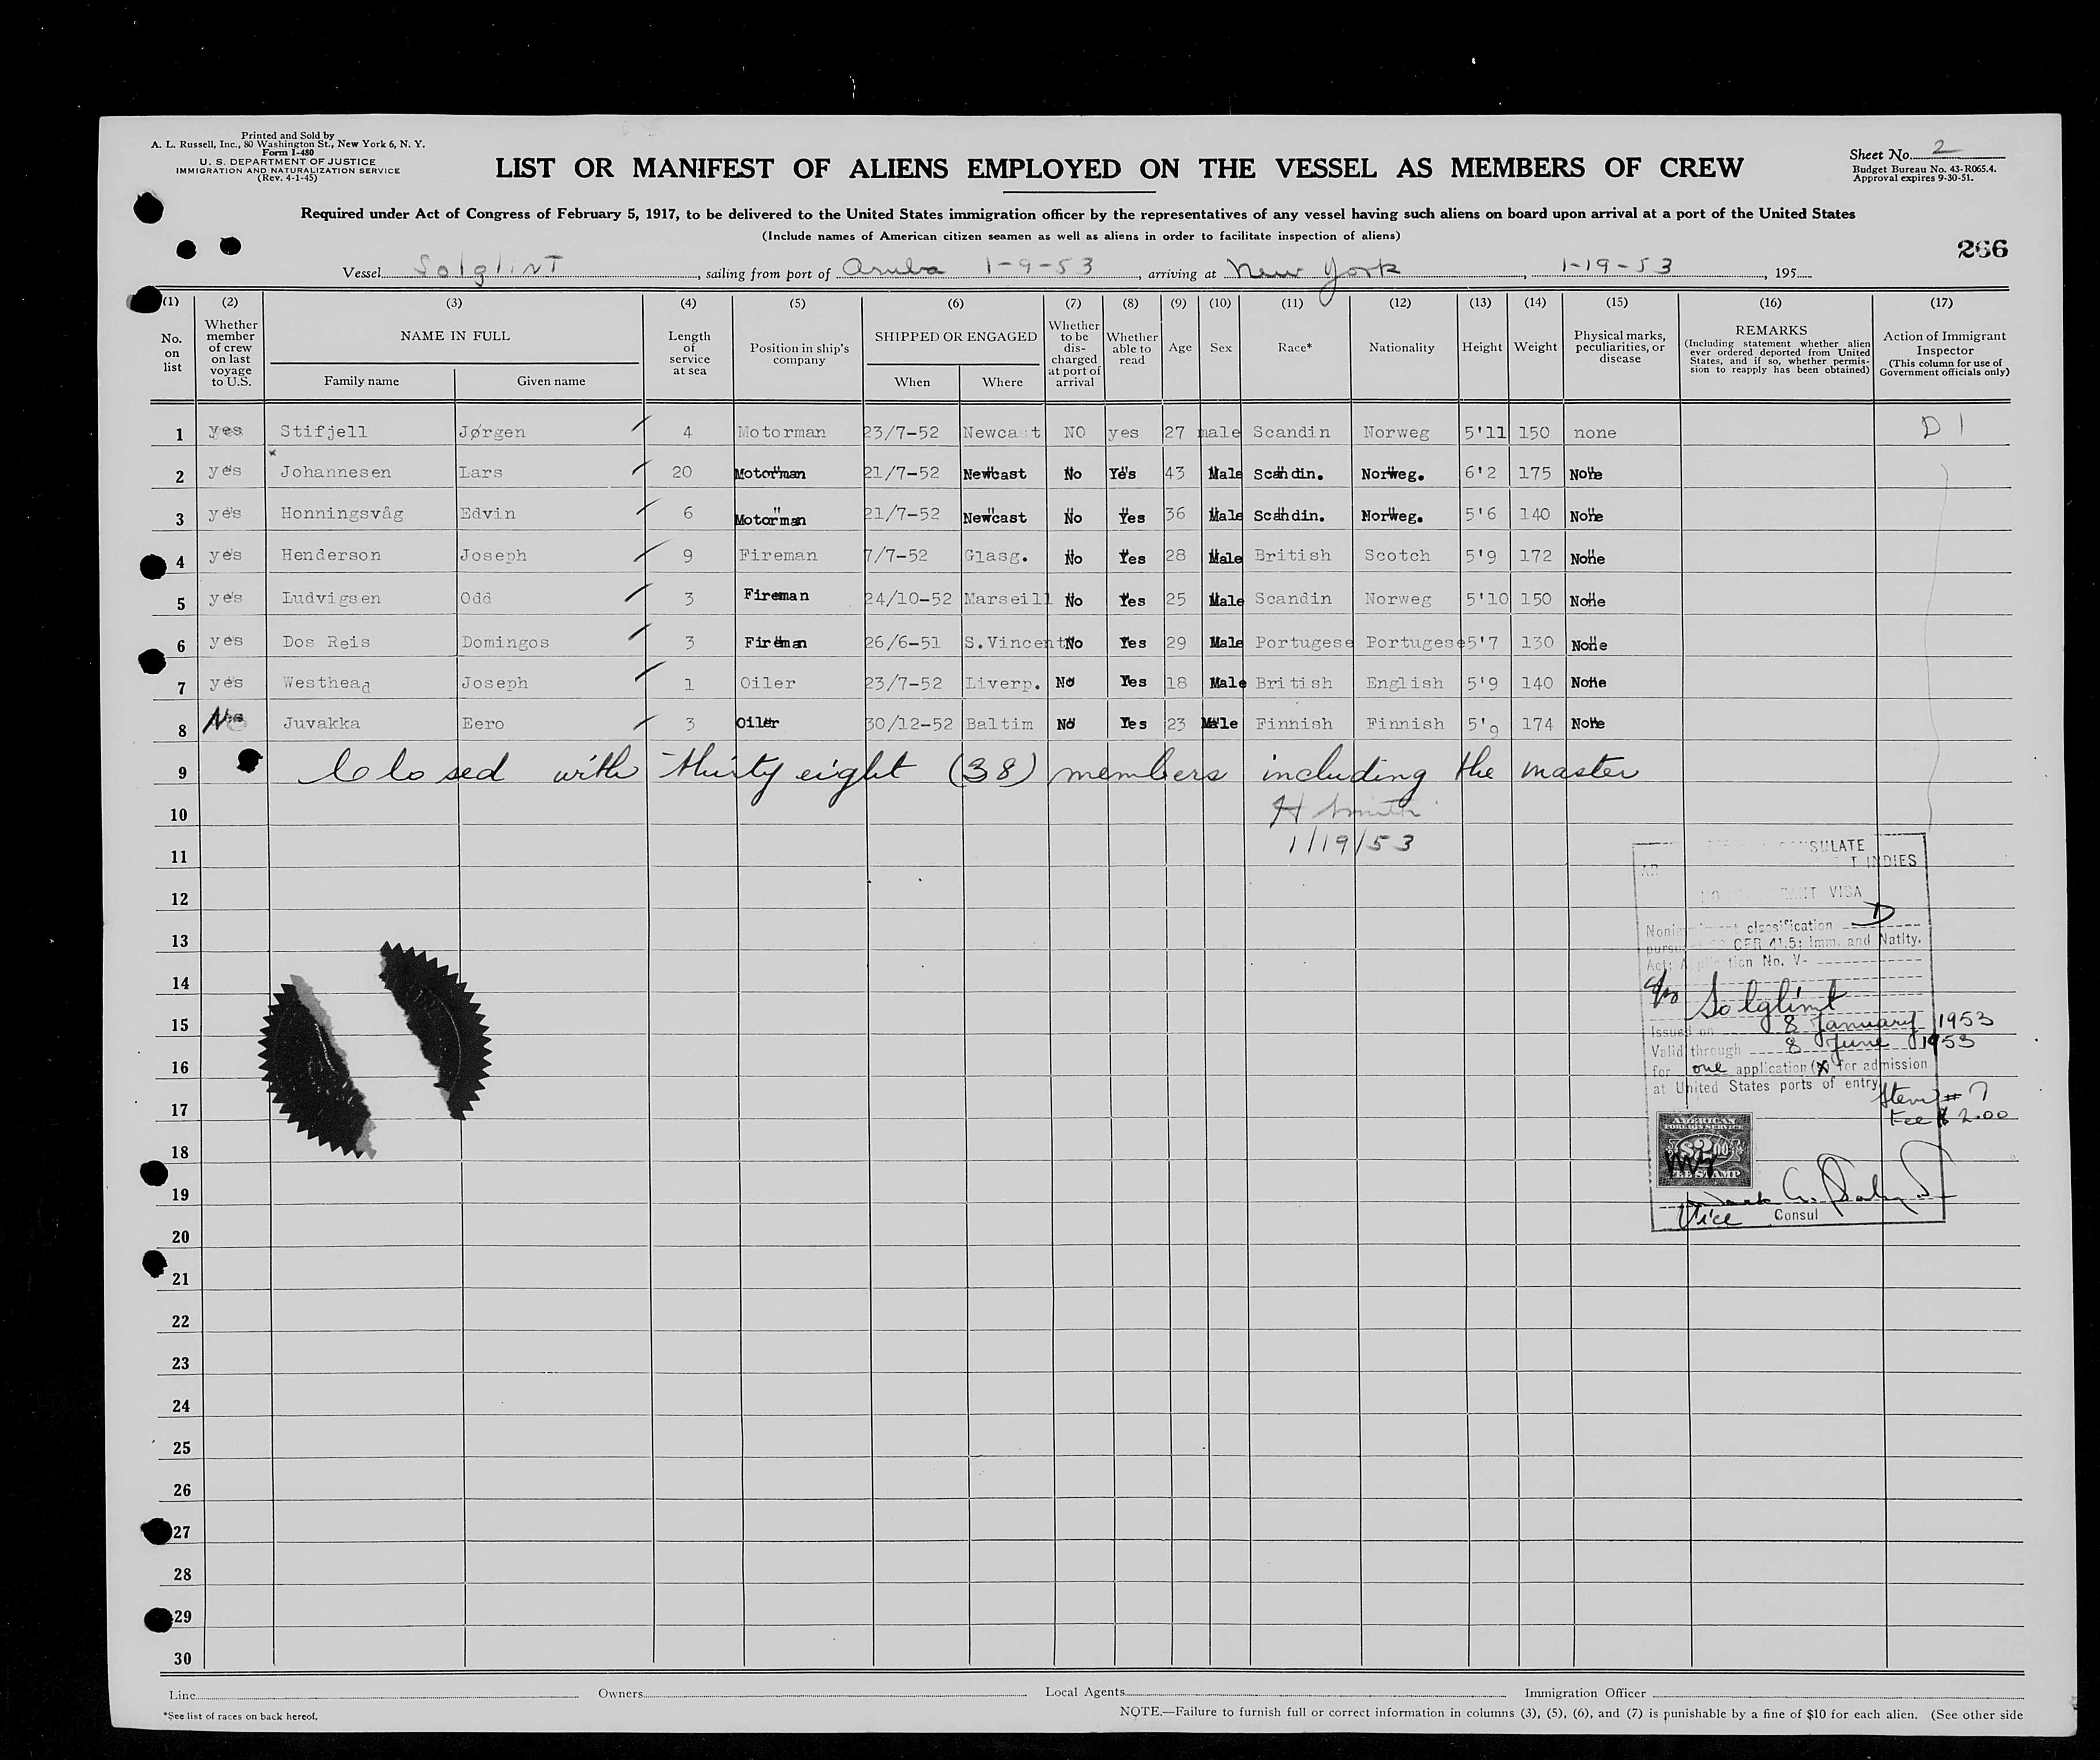 Printed and Sold by
A. L. Russell, Inc., 80 Washington St., New York 6, N. Y.
Form I-480
U. S. DEPARTMENT OF JUSTICE
IMMIGRATION AND NATURALIZATION SERVICE
(Rev. 4-1-45)
LIST OR MANIFEST OF ALIENS EMPLOYED ON THE VESSEL AS MEMBERS OF CREW
Sheet No. 2
Budget Bureau No. 43-R065.4.
Approval expires 9-30-51.
Required under Act of Congress of February 5, 1917, to be delivered to the United States immigration officer by the representatives of any vessel having such aliens on board upon arrival at a port of the United States
(Include names of American citizen seamen as well as aliens in order to facilitate inspection of aliens)
266
Vessel Solglint, sailing from port of Aruba 1-9-53, arriving at New York, 1-19-53, 195
(1) (2) (3) (4) (5) (6) (7) (8) (9) (10) (11) (12) (13) (14) (15) (16) (17)
No. on list
Whether member of crew on last voyage to U.S.
NAME IN FULL
Family name
Given name
Length of service at sea
Position in ship's company
SHIPPED OR ENGAGED
When
Where
Whether to be discharged at port of arrival
Whether able to read
Age
Sex
Race*
Nationality
Height
Weight
Physical marks, peculiarities, or disease
REMARKS
(Including statement whether alien ever ordered deported from United States, and if so, whether permission to reapply has been obtained)
Action of Immigrant Inspector
(This column for use of Government officials only)
1 yes Stifjell Jørgen 4 Motorman 23/7-52 Newcast NO yes 27 male Scandin Norweg 5'11 150 none D 1
2 yes Johannesen Lars 20 Motorman 21/7-52 Newcast No Yes 43 Male Scandin. Norweg. 6'2 175 None
3 yes Honningsvåg Edvin 6 Motorman 21/7-52 Newcast No Yes 36 Male Scandin. Norweg. 5'6 140 None
4 yes Henderson Joseph 9 Fireman 7/7-52 Glasg. No Yes 28 Male British Scotch 5'9 172 None
5 yes Ludvigsen Odd 3 Fireman 24/10-52 Marseill No Yes 25 Male Scandin Norweg 5'10 150 None
6 yes Dos Reis Domingos 3 Fireman 26/6-51 S.Vincent No Yes 29 Male Portugese Portugese 5'7 130 None
7 yes Westhead Joseph 1 Oiler 23/7-52 Liverp. No Yes 18 Male British English 5'9 140 None
8 No Juvakka Eero 3 Oiler 30/12-52 Baltim No Yes 23 Male Finnish Finnish 5'9 174 None
9 Closed with thirty eight (38) members including the master
10 H Smith
11 1/19/53
12
13
14
15
16
17
18
19
20
21
22
23
24
25
26
27
28
29
30
CONSULATE
T INDIES
VISA
classification D
CFR 41.5; Imm. and Natlty.
Act; Application No. V-
Solglint
Issued on 8 January 1953
Valid through 8 June 1953
for one application (x) for admission
at United States ports of entry
Item # 7
Fee $ 2.00
AMERICAN
FOREIGN SERVICE
$2.00
FEE STAMP
Vice Consul
Line
Owners
Local Agents
Immigration Officer
*See list of races on back hereof.
NOTE.—Failure to furnish full or correct information in columns (3), (5), (6), and (7) is punishable by a fine of $10 for each alien. (See other side